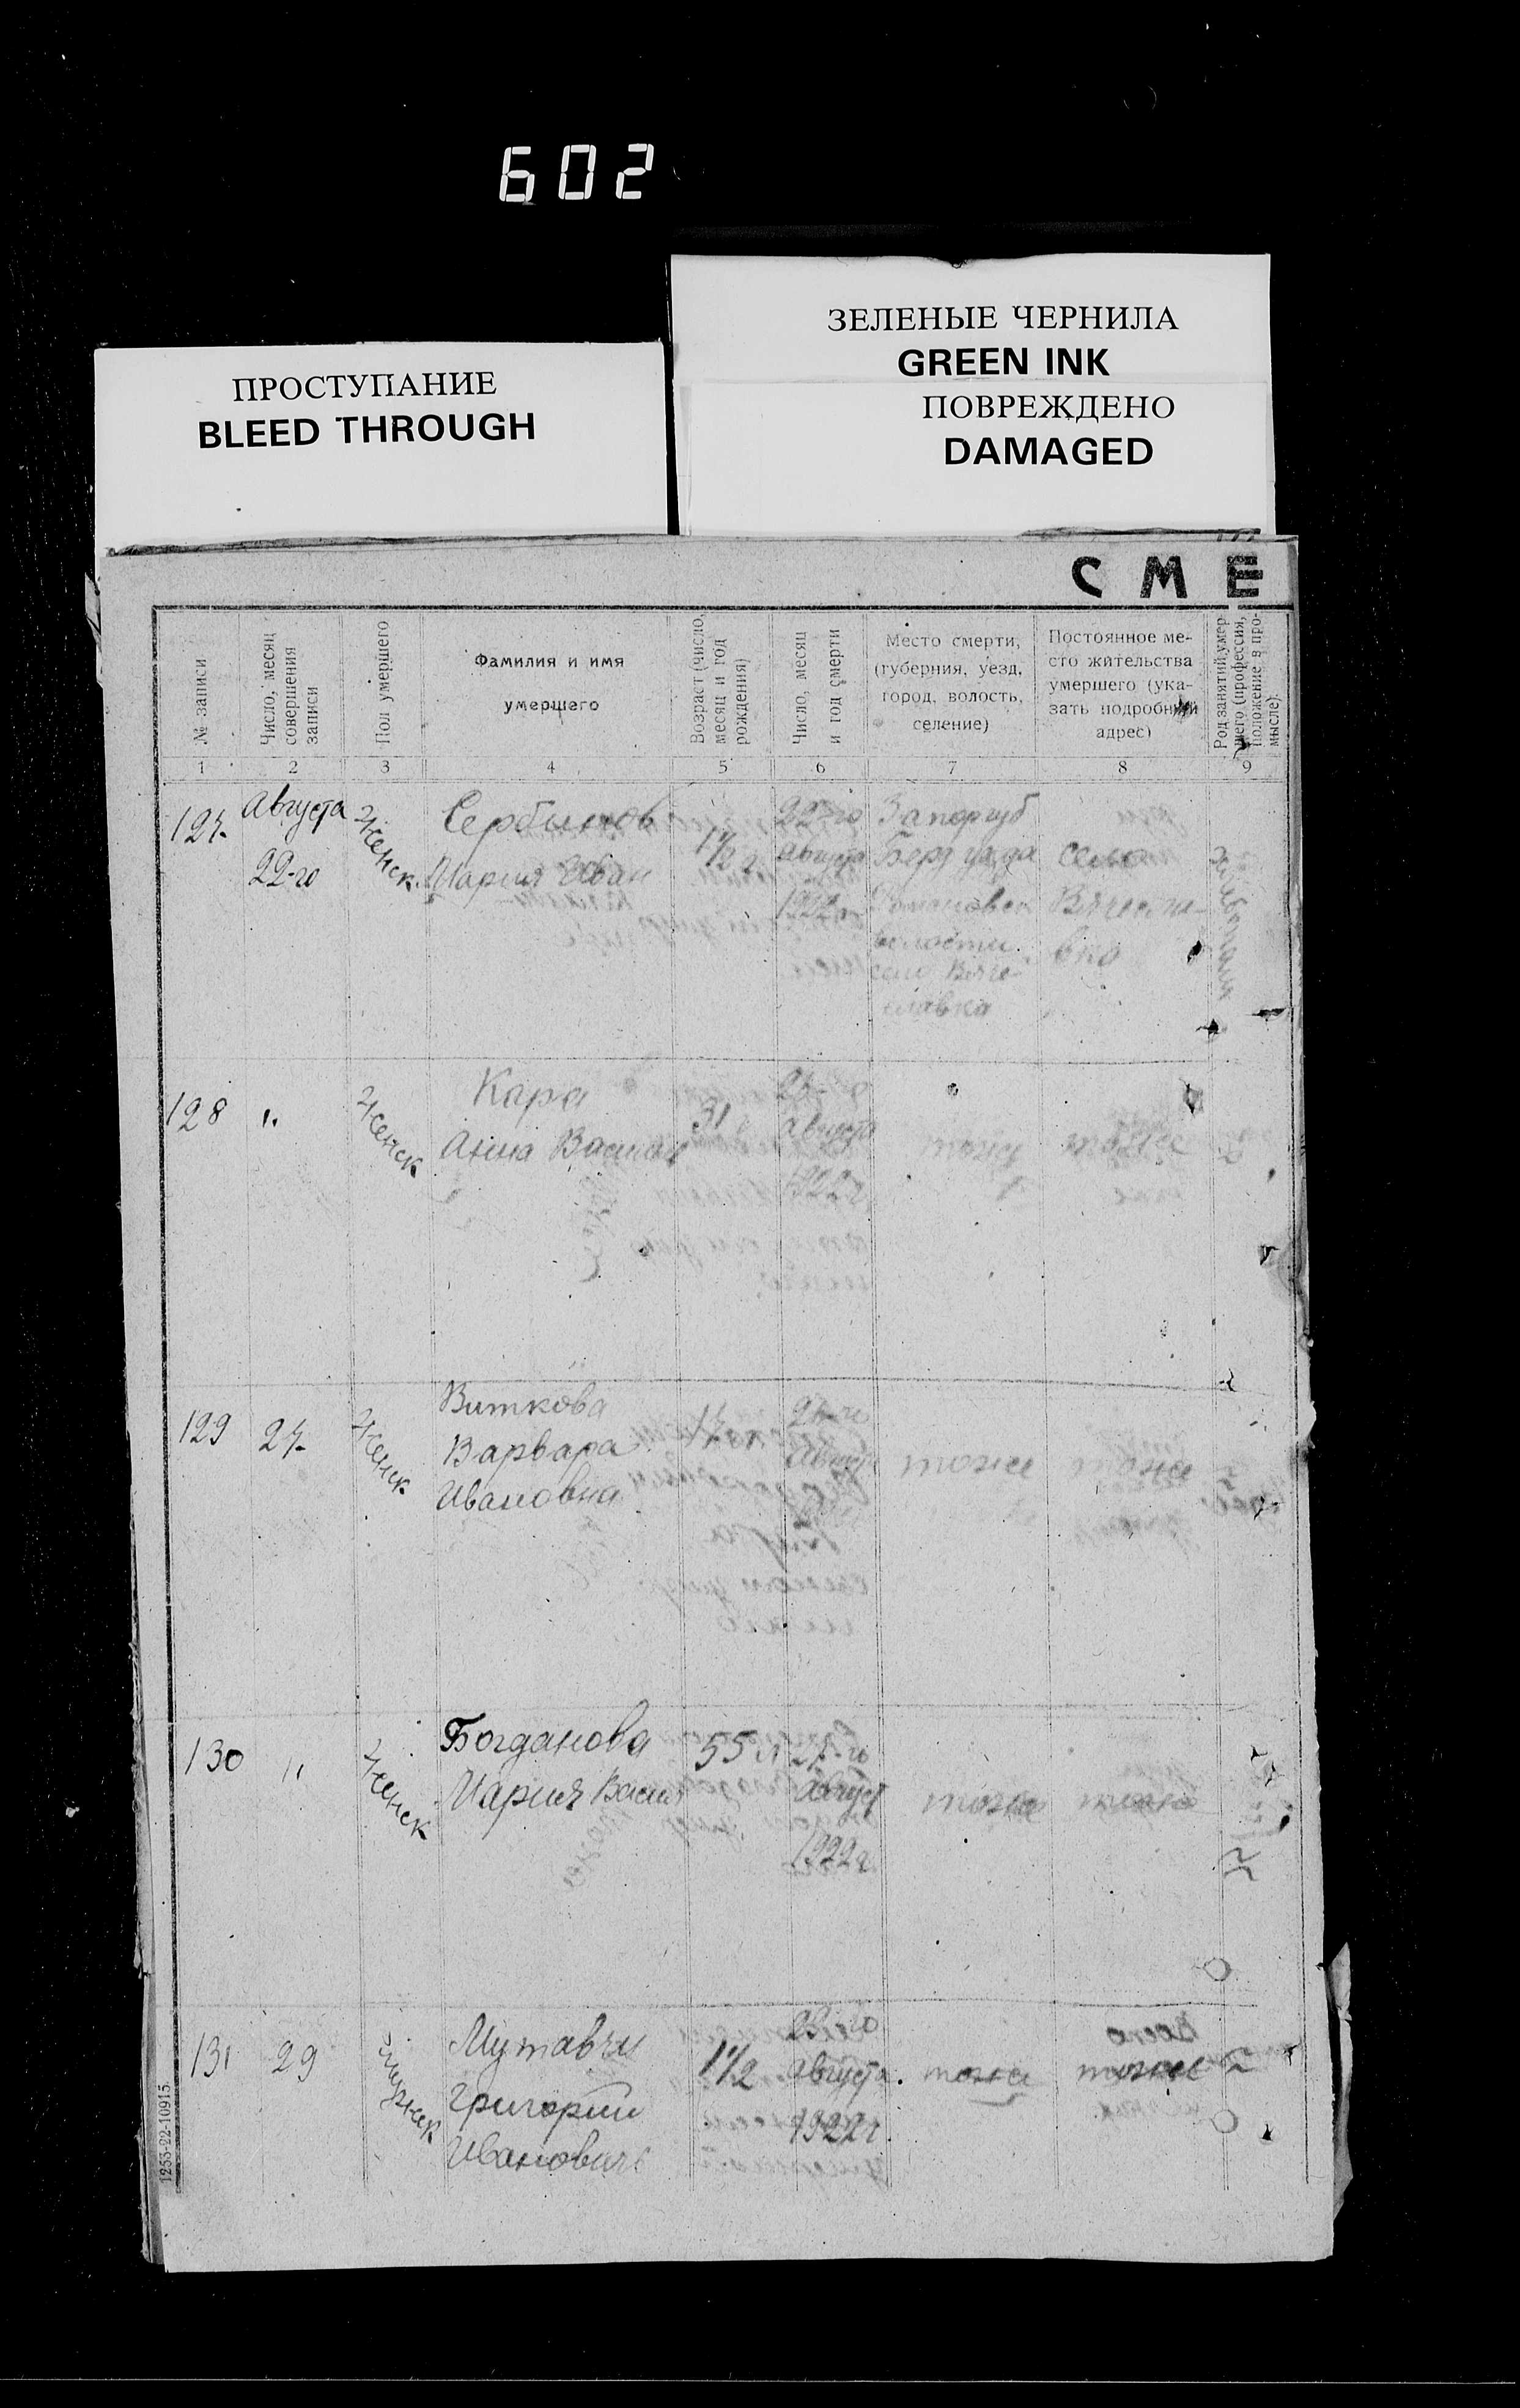 602
ЗЕЛЕНЫЕ ЧЕРНИЛА
GREEN INK
ПОВРЕЖДЕНО
DAMAGED
ПРОСТУПАНИЕ
BLEED THROUGH
СМЕ
№ записи
Число, месяц
совершения
записи
Пол умершего
Фамилия и имя
умершего
Возраст (число,
месяц и год
рождения)
Число, месяц
и год смерти
Место смерти,
(губерния, уезд,
город, волость,
селение)
Постоянное ме-
сто жительства
умершего (ука-
зать подробный
адрес)
Род занятий умер-
шего (профессия,
положение в про-
мысле).
1 2 3 4 5 6 7 8 9
127
Августа
22-го
Женск.
Сербинов
Мария Иван
1½ г
22-го
Августа
1922
Запор губ
Берд уезда
волости
село Вяче-
славка
село
Вячесла-
вка
Хлебопаш
128 "
Женск
Кара
Анна Васил
31
Августа
1922 г
тоже тоже
129 27
Женск
Виткова
Варвара
Ивановна
Август
тоже тоже
130 "
Женск
Богданова
Мария Васил
55 л
27-го
Август
1922 г
тоже тоже
131 29
Мужск
Мутавчи
Григорий
Иванович
1½
Августа
1922 г.
тоже тоже
1253-22-10915.